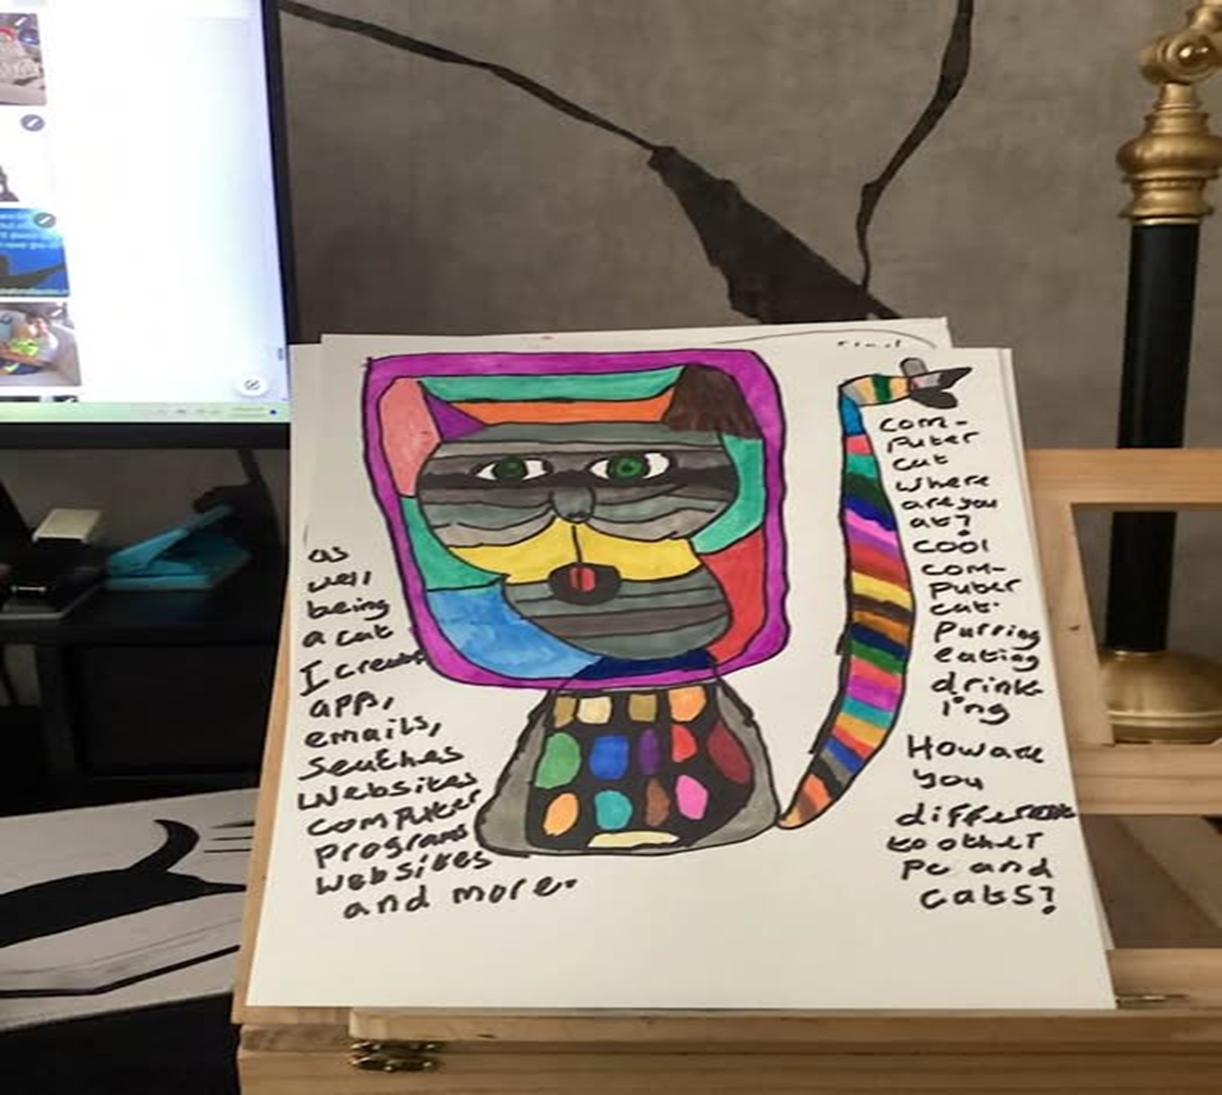 as
well
being
a cat
I create
apps,
emails,
seatches
Websites
computer
programs
websites
and more.
com-
puter
cat
where
are you
at?
cool
com-
puter
cat.
Purring
eating
drink-
ing
How are
you
different
to other
Pc and
cats?